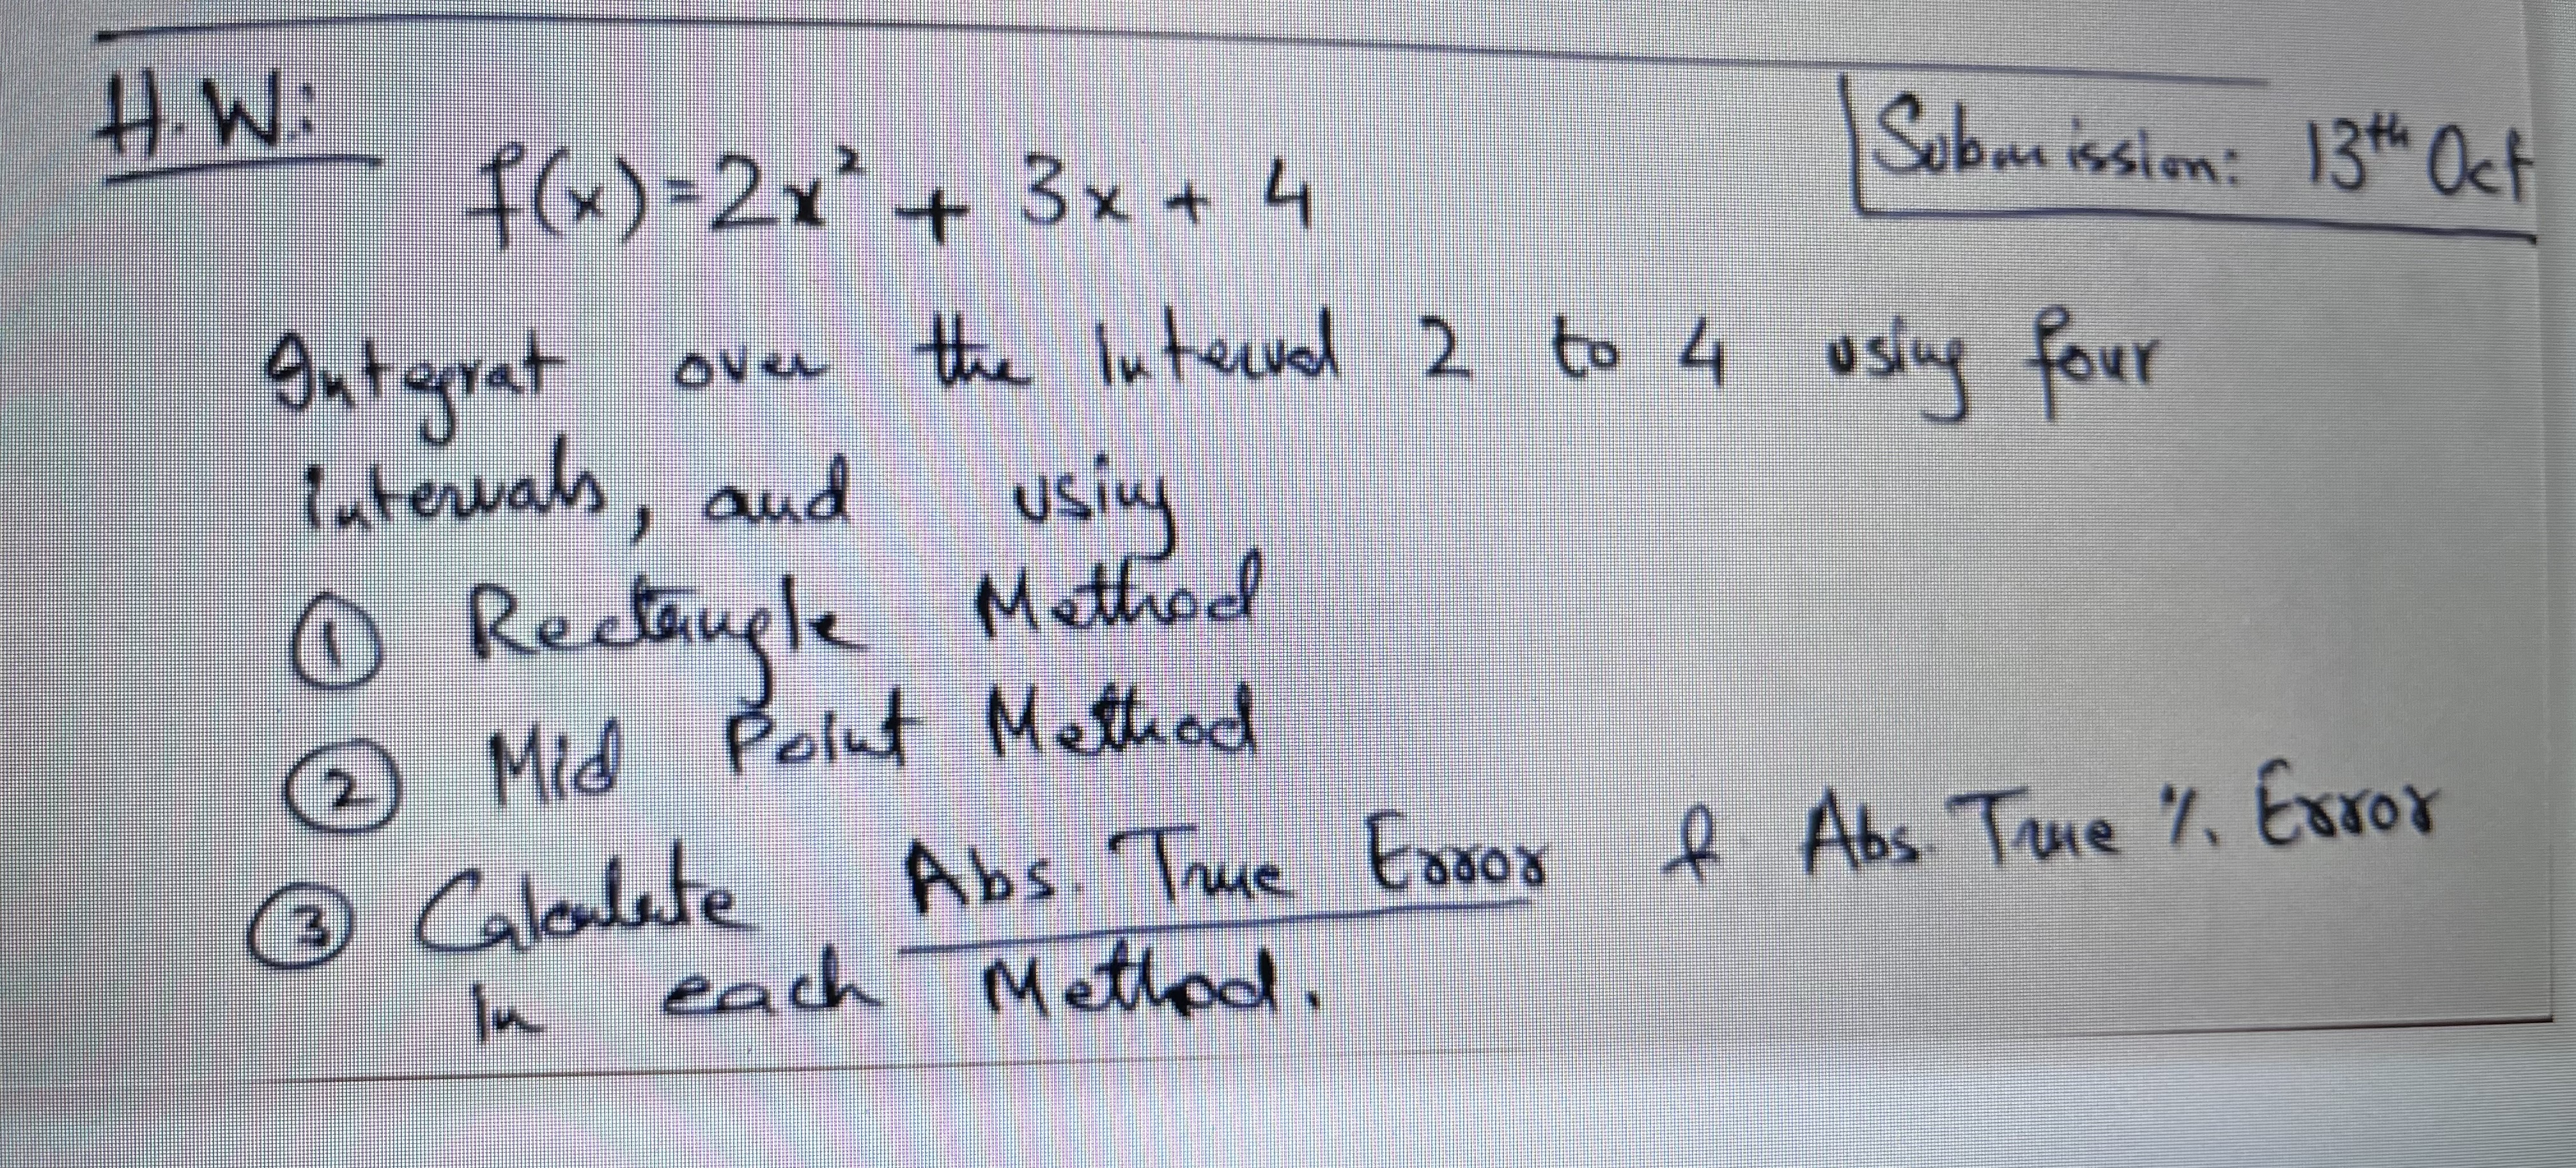 H.W:
Submission: 13th Oct
f(x)=2x² + 3x + 4
Integrat over the Interval 2 to 4 using four
intervals, and using
① Rectangle Method
② Mid Point Method
③ Calculate Abs. True Error & Abs. True % Error
in each Method.